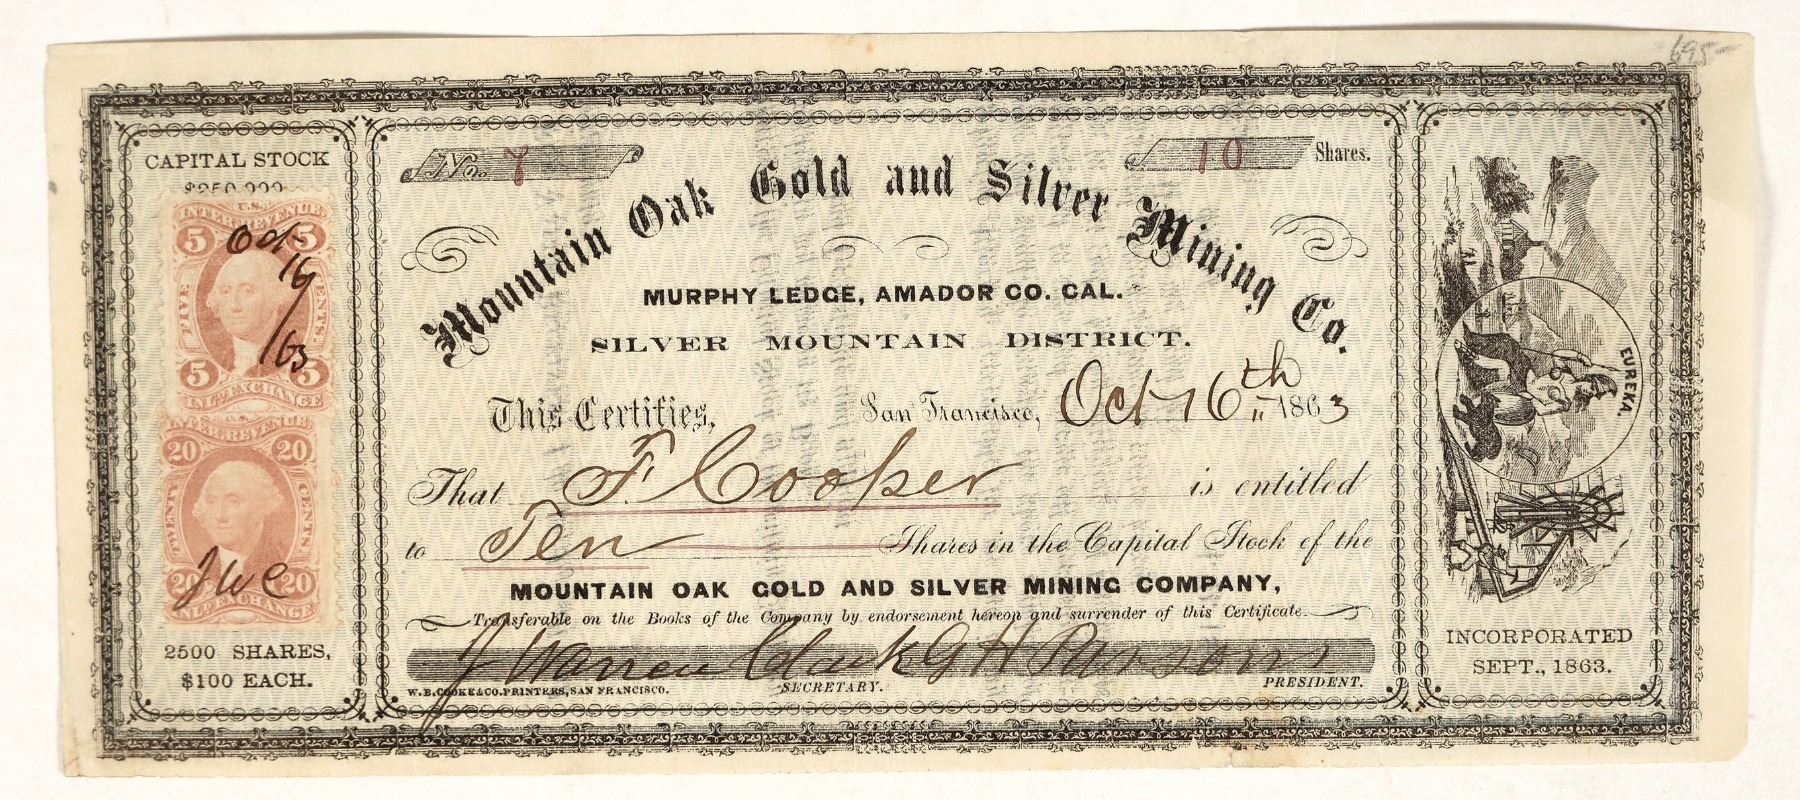 695-
CAPITAL STOCK
$250,000
U.S.
INTER. REVENUE
5 5
Oct
16/
/63
FIVE CENTS.
5 5
INL. EXCHANGE
INTER. REVENUE
20 20
TWENTY CENTS
JWC
20 20
INL. EXCHANGE
2500 SHARES,
$100 EACH.
No. 7
10 Shares.
Mountain Oak Gold and Silver Mining Co.
MURPHY LEDGE, AMADOR CO. CAL.
SILVER MOUNTAIN DISTRICT.
This Certifies,
San Francisco, Oct 16th 1863
That F Cooper is entitled
to Ten Shares in the Capital Stock of the
MOUNTAIN OAK GOLD AND SILVER MINING COMPANY,
Transferable on the Books of the Company by endorsement hereon and surrender of this Certificate.
J Warren Clark G H Parsons
W.B. COOKE & CO. PRINTERS, SAN FRANCISCO.
SECRETARY.
PRESIDENT.
EUREKA.
INCORPORATED
SEPT., 1863.